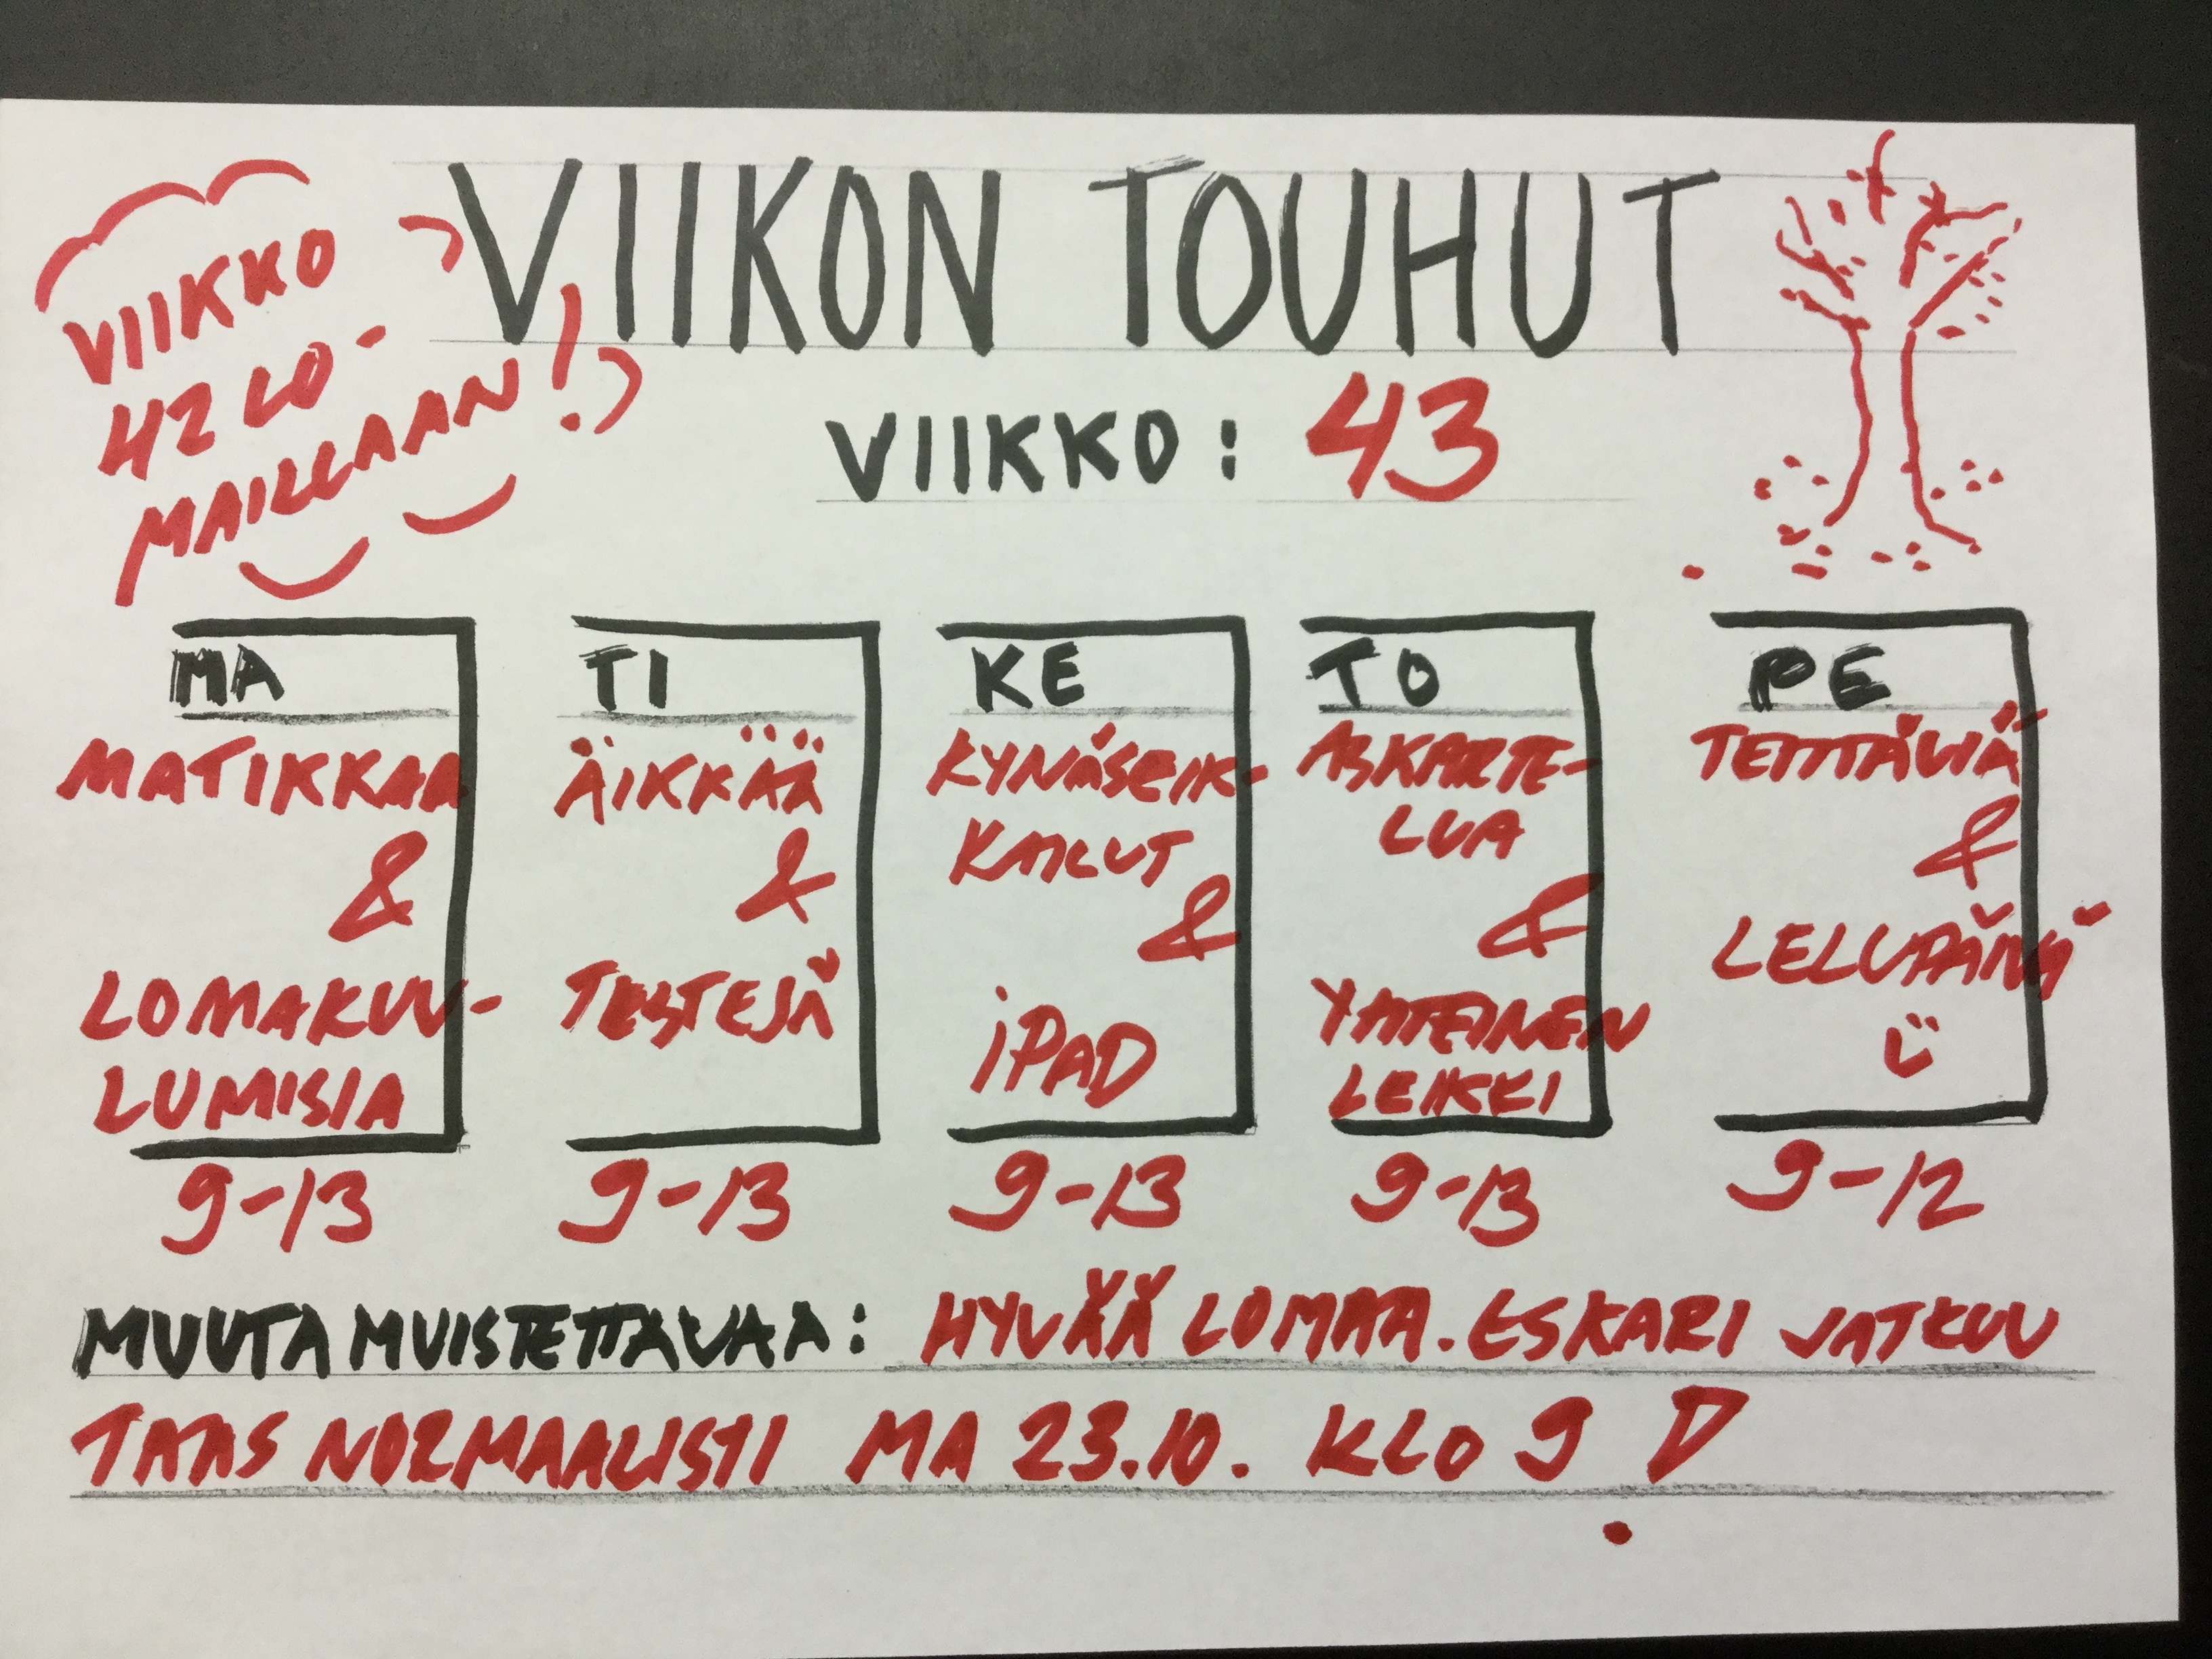 VIIKON TOUHUT
VIIKKO
42 LO-
MAILLAAN!
VIIKKO: 43
MA
MATIKKAA
&
LOMAKUU-
LUMISIA
9-13
TI
ÄIKKÄÄ
&
TESTEJÄ
9-13
KE
KYNÄSEIK-
KAILUT
&
iPAD
9-13
TO
ASKARTE-
LUA
&
YHTEINEN
LEIKKI
9-13
PE
TEHTÄVIÄ
&
LELUPÄIVÄ
9-12
MUUTA MUISTETTAVAA: HYVÄÄ LOMAA. ESKARI JATKUU
TAAS NORMAALISTI MA 23.10. KLO 9 D